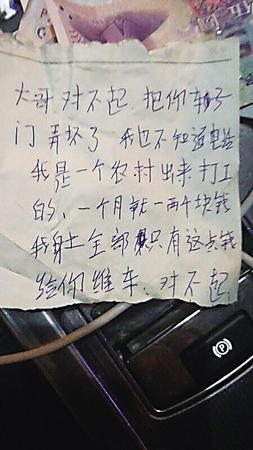 大哥 对不起 把你车子
门弄坏了 我也不知道电话
我是一个农村出来打工
的、一个月就一两千块钱
我身上全部只有这点钱
给你维车、对不起